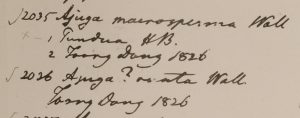 2035 Ajuga macrosperma Wall
1 Tundua HB.
2 Toong Dong 1826
2036 Ajuga? Wall.
Toong Dong 1826